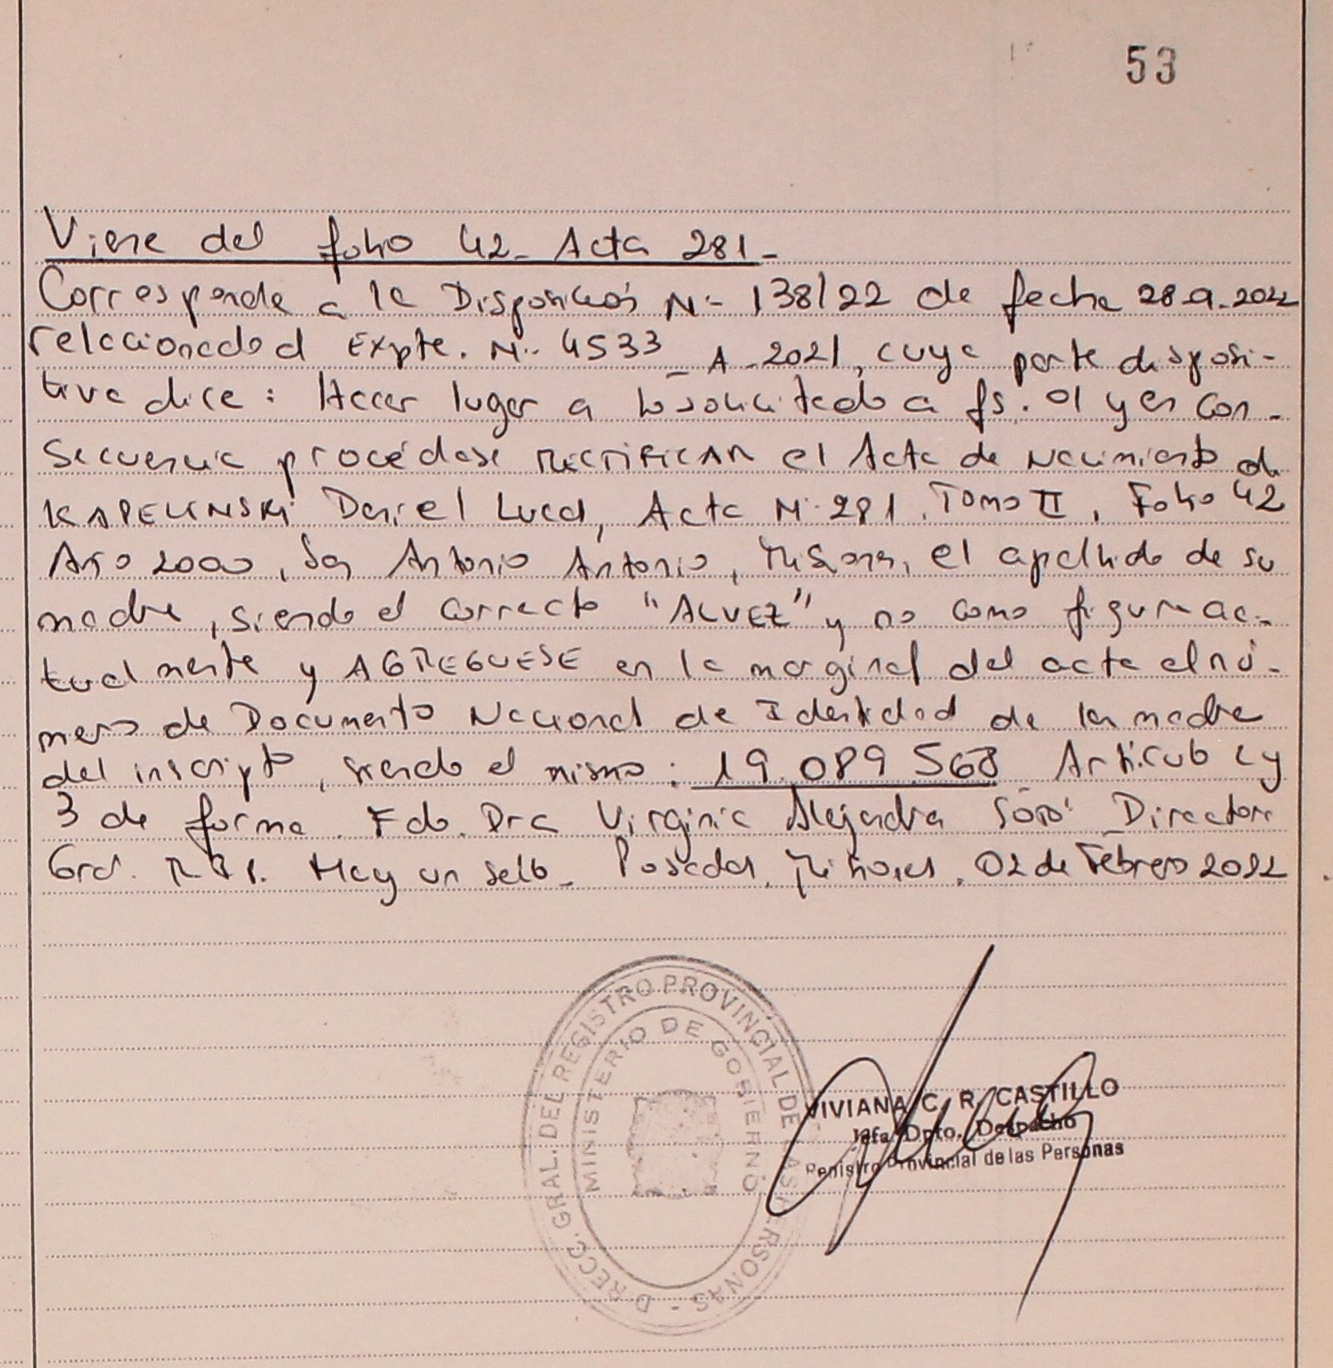 53
Viene del folio 42_ Acta 281_
Corresponde a la Disposición N- 138/22 de fecha 28.9.2022
relacionado al Expte. N- 4533_A_2021, cuya parte disposi-
tiva dice: Hacer lugar a lo solicitado a fs. 01 y en con-
secuencia procédase RECTIFICAR el Acta de Nacimiento de
KAPELINSKI Daniel Lucas, Acta N- 281. Tomo II, Folio 42
Año 2000, San Antonio Antonio, Misiones, el apellido de su
madre, siendo el correcto "ALVEZ" y no como figura ac-
tualmente y AGREGUESE en la marginal del acta el nú-
mero de Documento Nacional de Identidad de la madre
del inscripto, siendo el mismo: 19.089.568 Artículo 2 y
3 de forma. Fdo. Dra Virginia Alejandra Directora
Gral. R.P.P. Hay un sello_ Posadas, Misiones, 02 de Febrero 2022
DIRECC. GRAL. DEL REGISTRO PROVINCIAL DE LAS PERSONAS -
MINISTERIO DE GOBIERNO
VIVIANA C. R. CASTILLO
Jefa Dpto. Despacho
Registro Provincial de las Personas